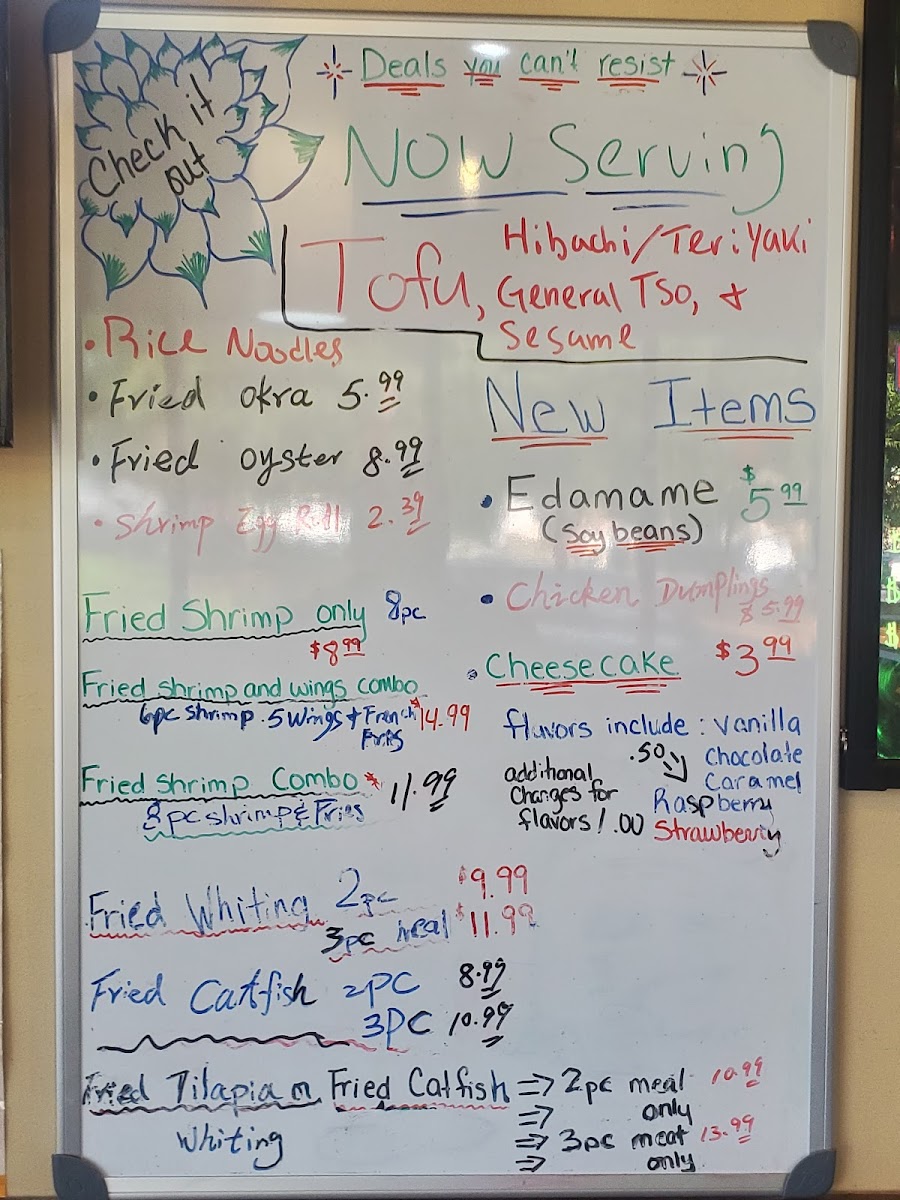 Check it
out
Deals you can't resist
NOW Serving
Tofu, Hibachi/Teriyaki
General TSO, &
Sesame
• Rice Noodles
• Fried okra 5.99
• Fried oyster 8.99
• Shrimp Egg Roll 2.39
Fried Shrimp only 8pc
$8.99
Fried shrimp and wings combo
6pc shrimp . 5 Wings + French $14.99
Fries
Fried Shrimp Combo* 11.99
8pc shrimp & Fries
New Items
• Edamame $5.99
(Soybeans)
• Chicken Dumplings
$5.99
• Cheesecake $3.99
flavors include: vanilla
.50 Chocolate
Caramel
Raspberry
Strawberry
additional
Changes for
flavors 1.00
Fried Whiting 2pc $9.99
3pc meal $11.99
Fried Catfish 2PC 8.99
3PC 10.99
Fried Tilapia or Fried Catfish ⇒ 2pc meal 10.99
⇒ only
Whiting ⇒ 3pc meat 13.99
⇒ only